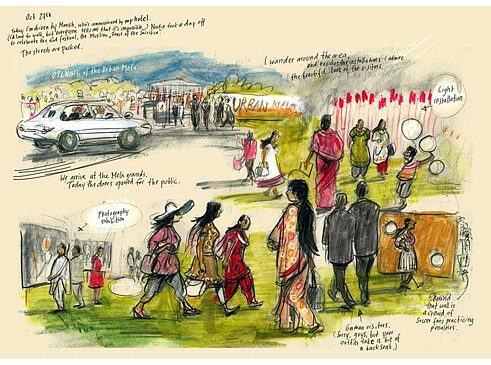 Oct 27th
Today I'm driven by Manish, who's commissioned by my hotel.
(I'd love to walk, but everyone tells me that it's impossible.) Nafie took a day off
to celebrate the Eid festival, the Muslim "Feast of the Sacrifice".
The streets are packed.
OPENING of the Urban Mela
URBAN MELA
I wander around the area
and besides the installations I admire
the beautiful look of the visitors.
Light
installation
We arrive at the Mela grounds.
Today the doors opened for the public.
Photography
exhibition
German visitors.
(Sorry, guys, but your
outfits take a bit of
a back seat.)
Behind
that wall is
a crowd of
Soccer fans practicing
penalties.